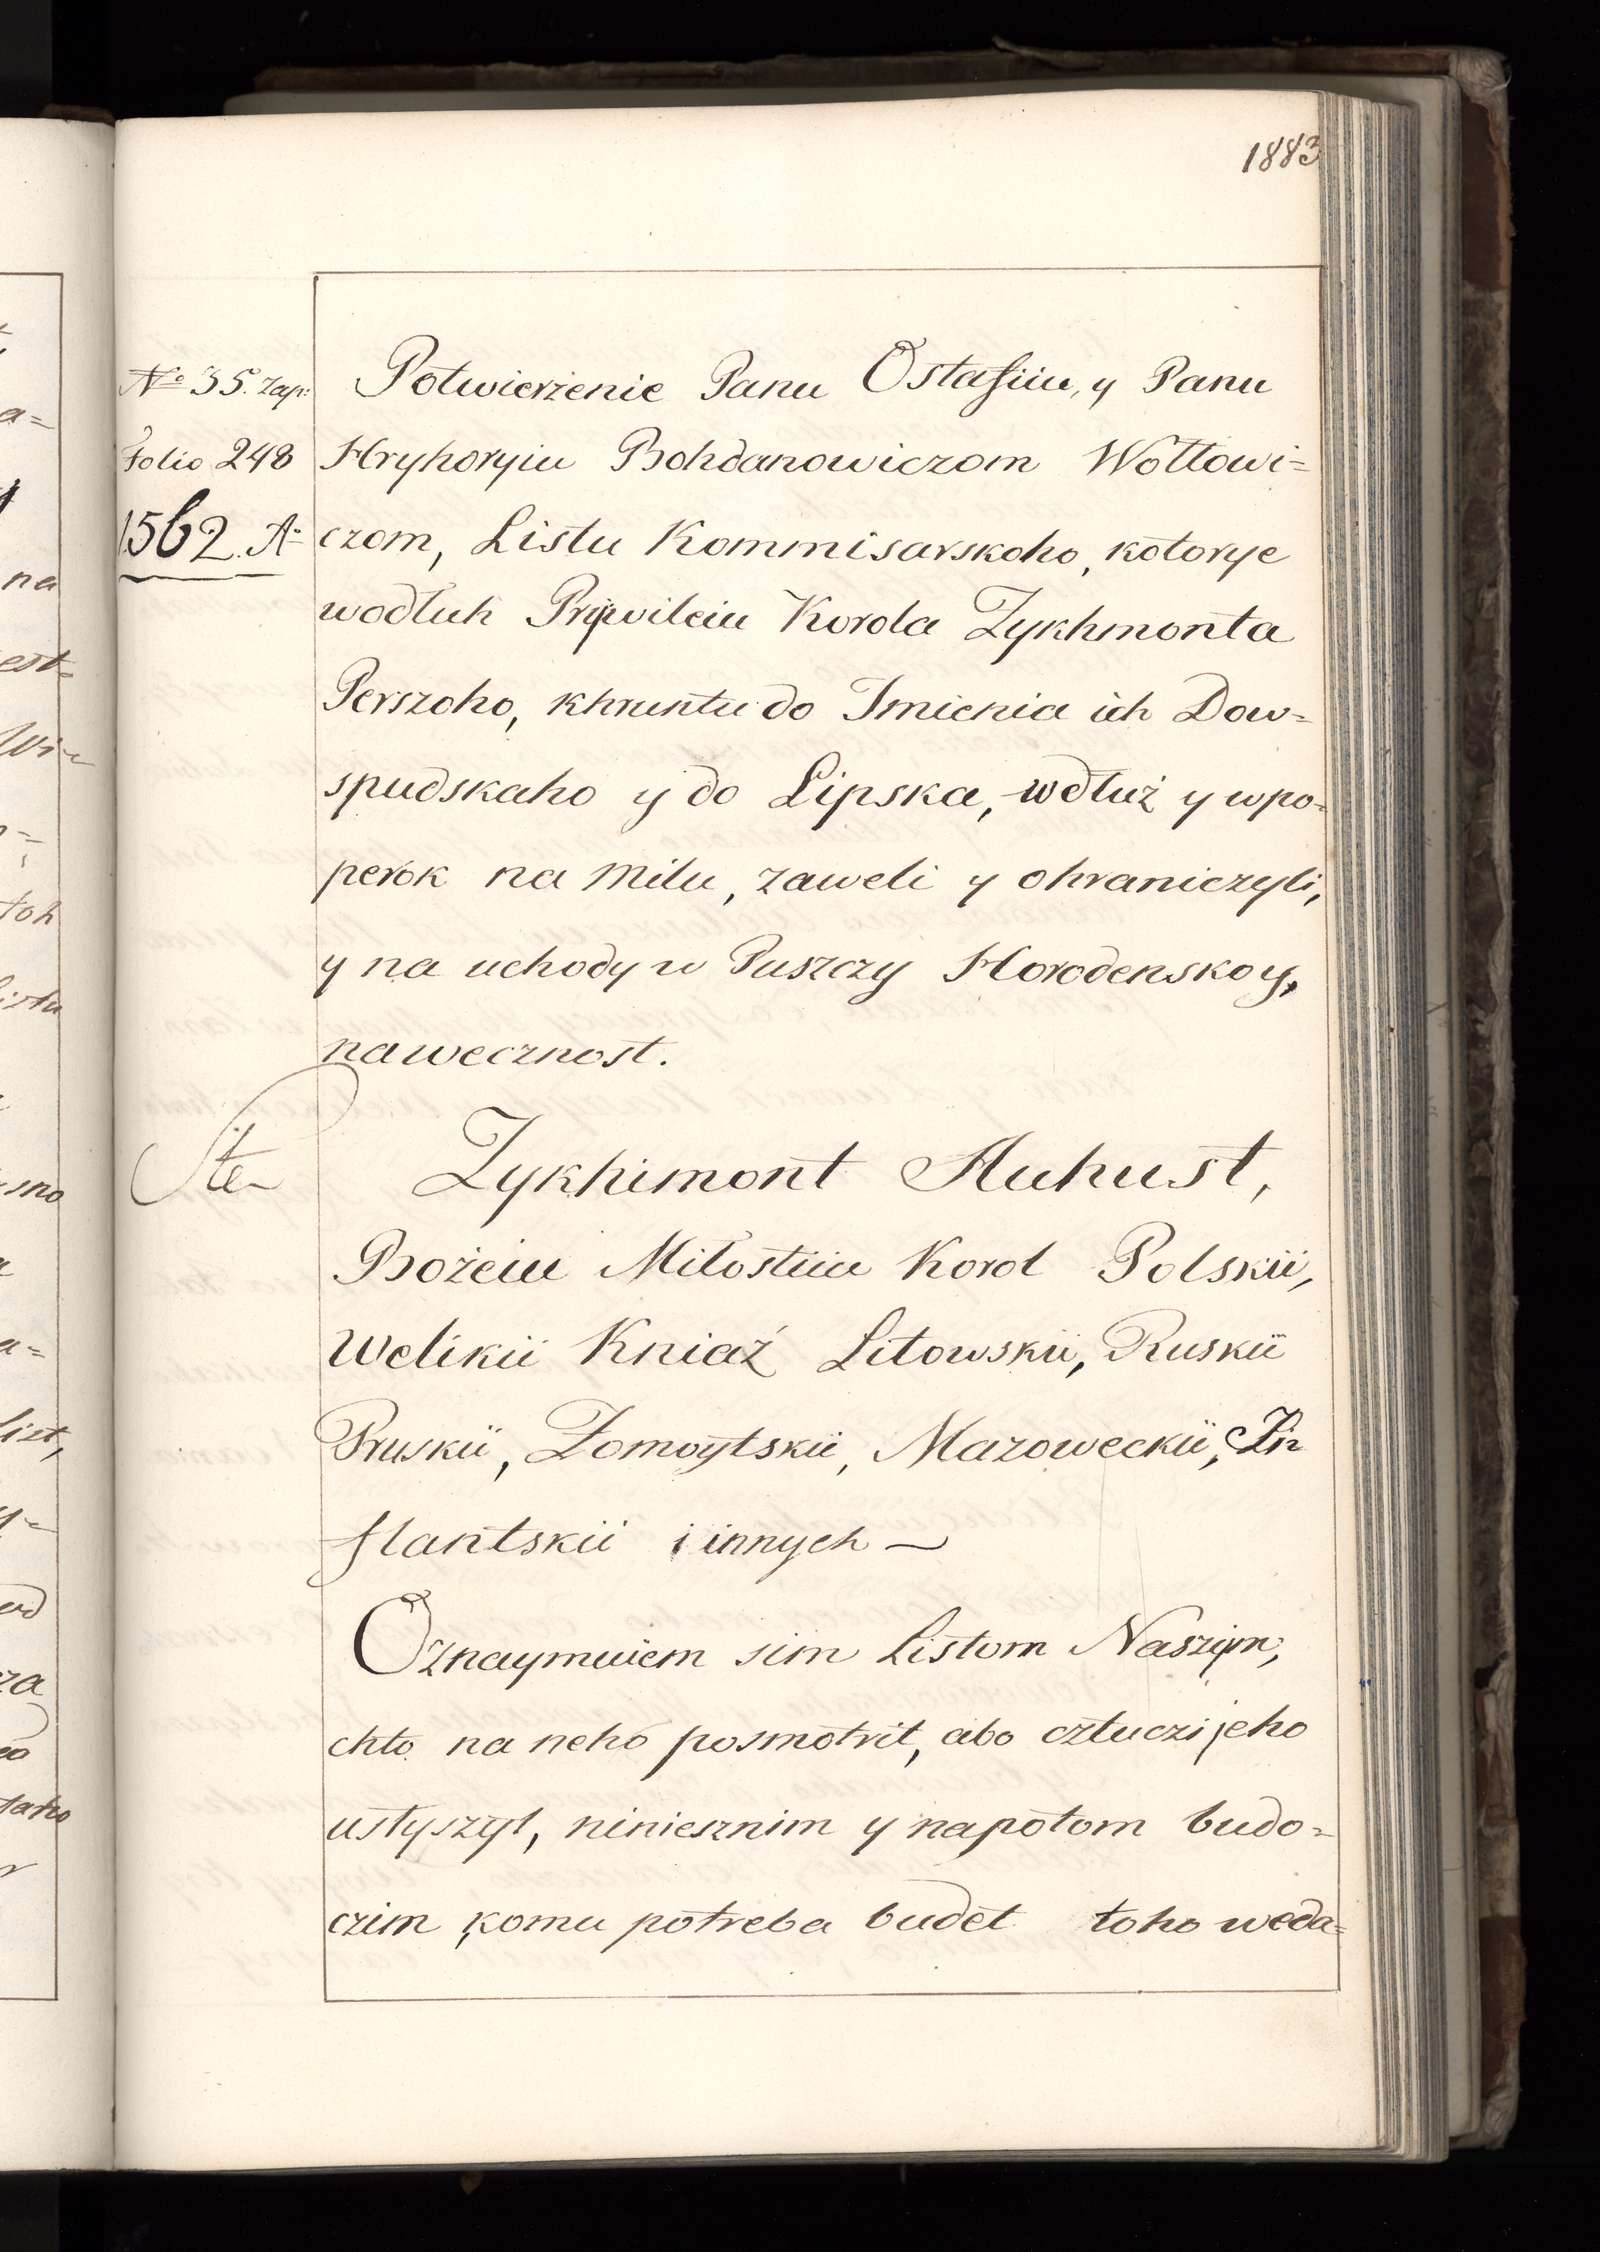 1883
No 35. zap:
folio 248
1562. A=
Potwierżenie Panu Ostafiiu, y Panu
Hryhoryiu Bohdanowiczom Wołłowi=
czom, Listu Kommisarskoho, kotorye
wodłuh Prywileiu Korola Zykhmonta
Perszoho, khruntu do Imienia ich Dow=
spudskaho y do Lipska, wdłuż y wpo=
perok na milu, zaweli y ohraniczyli,
y na uchody w Puszczy Horodenskoy,
na wecznost.
Zykhimont Auhust,
Bożeiu Miłostiiu Korol Polskii,
Welikii Kniaź Litowskii, Ruskii
Pruskii, Żomoytskii, Mazoweckii, Lin
flantskii i innych —
Oznaymuiem sim Listom Naszym,
chto na neho posmotrit, abo cztuczi jeho
usłyszyt, niniesznim y napotom budo=
czim, komu potreba budet toho weda=